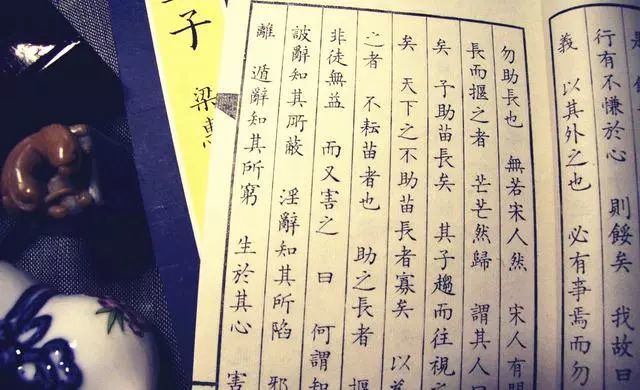 行有不慊於心 則餒矣 我故曰
義 以其外之也 必有事焉而勿
勿助長也 無若宋人然 宋人有閔
長而揠之者 芒芒然歸 謂其人曰
矣 予助苗長矣 其子趨而往視之
矣 天下之不助苗長者寡矣 以為
之者 不耘苗者也 助之長者 揠
非徒無益 而又害之 曰 何謂知
詖辭知其所蔽 淫辭知其所陷 邪
離 遁辭知其所窮 生於其心 害
子
梁惠